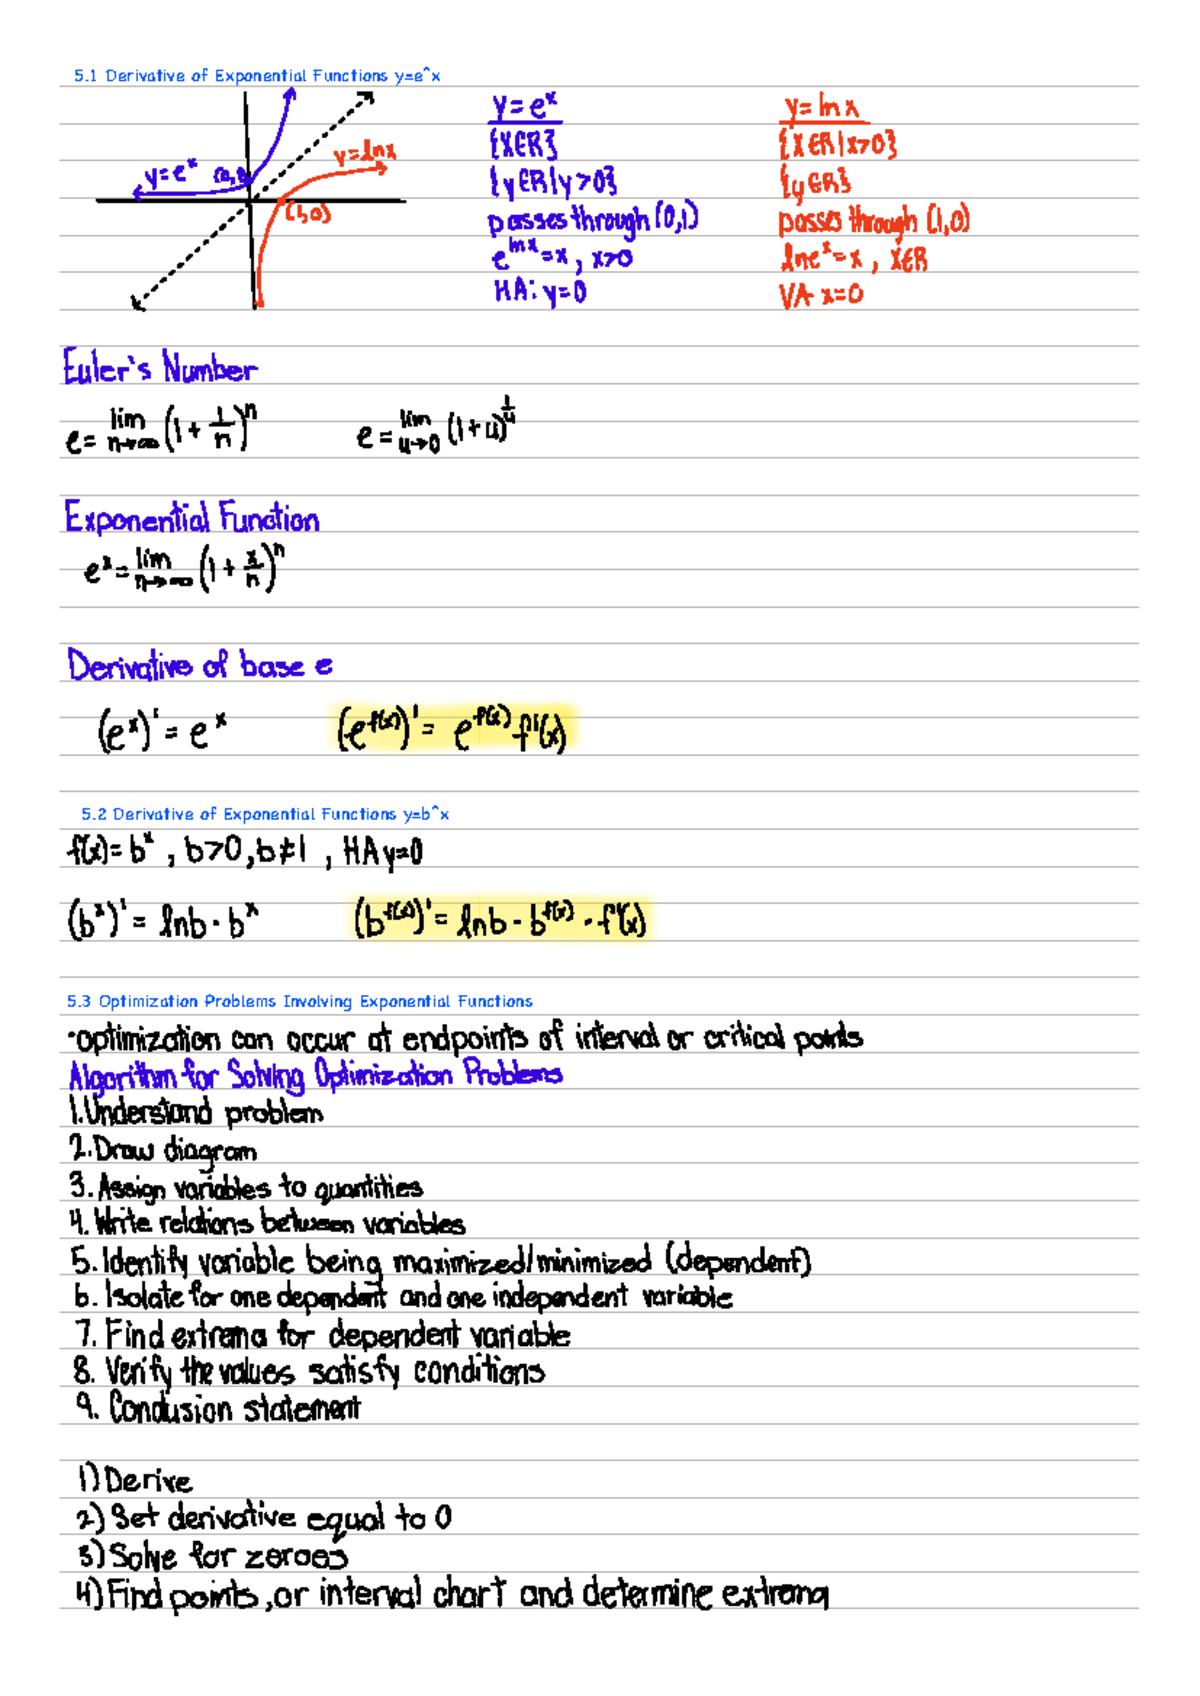 5.1 Derivative of Exponential Functions y=e^x
y=eˣ
y=lnx
(1,0)
y=eˣ
{XER}
{yER|y>0}
passes through (0,1)
e^lnx=x, x>0
HA: y=0
y=lnx
{XER|x>0}
{yER}
passes through (1,0)
lneˣ=x, XER
VA x=0
Euler's Number
e= lim n→∞ (1+1/n)ⁿ e= lim u→0 (1+u)^1/u
Exponential Function
eˣ= lim n→∞ (1+x/n)ⁿ
Derivative of base e
(eˣ)'=eˣ (e^f(x))'= e^f(x) f'(x)
5.2 Derivative of Exponential Functions y=b^x
f(x)=bˣ, b>0, b≠1, HA y=0
(bˣ)'= lnb·bˣ (b^f(x))'= lnb·b^f(x)·f'(x)
5.3 Optimization Problems Involving Exponential Functions
·optimization can occur at endpoints of interval or critical points
Algorithm for Solving Optimization Problems
1.Understand problem
2.Draw diagram
3.Assign variables to quantities
4.Write relations between variables
5.Identify variable being maximized/minimized (dependent)
6.Isolate for one dependent and one independent variable
7. Find extrema for dependent variable
8. Verify the values satisfy conditions
9. Conclusion statement
1) Derive
2) Set derivative equal to 0
3) Solve for zeroes
4) Find points, or interval chart and determine extrema